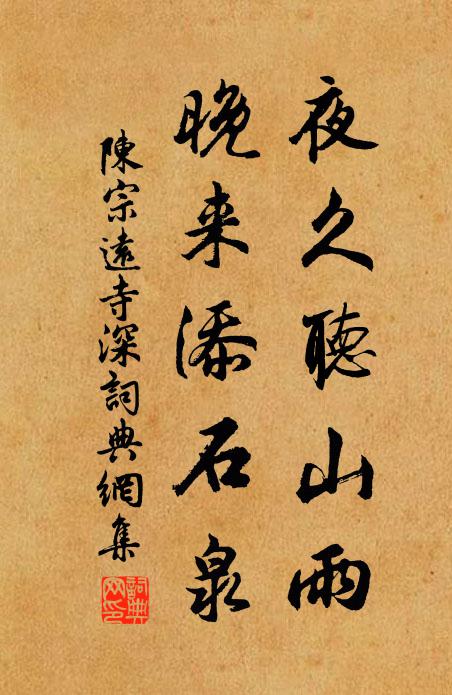 夜久聽山雨
晚来添石泉
陳宗遠寺深詞典網集
詞典網印